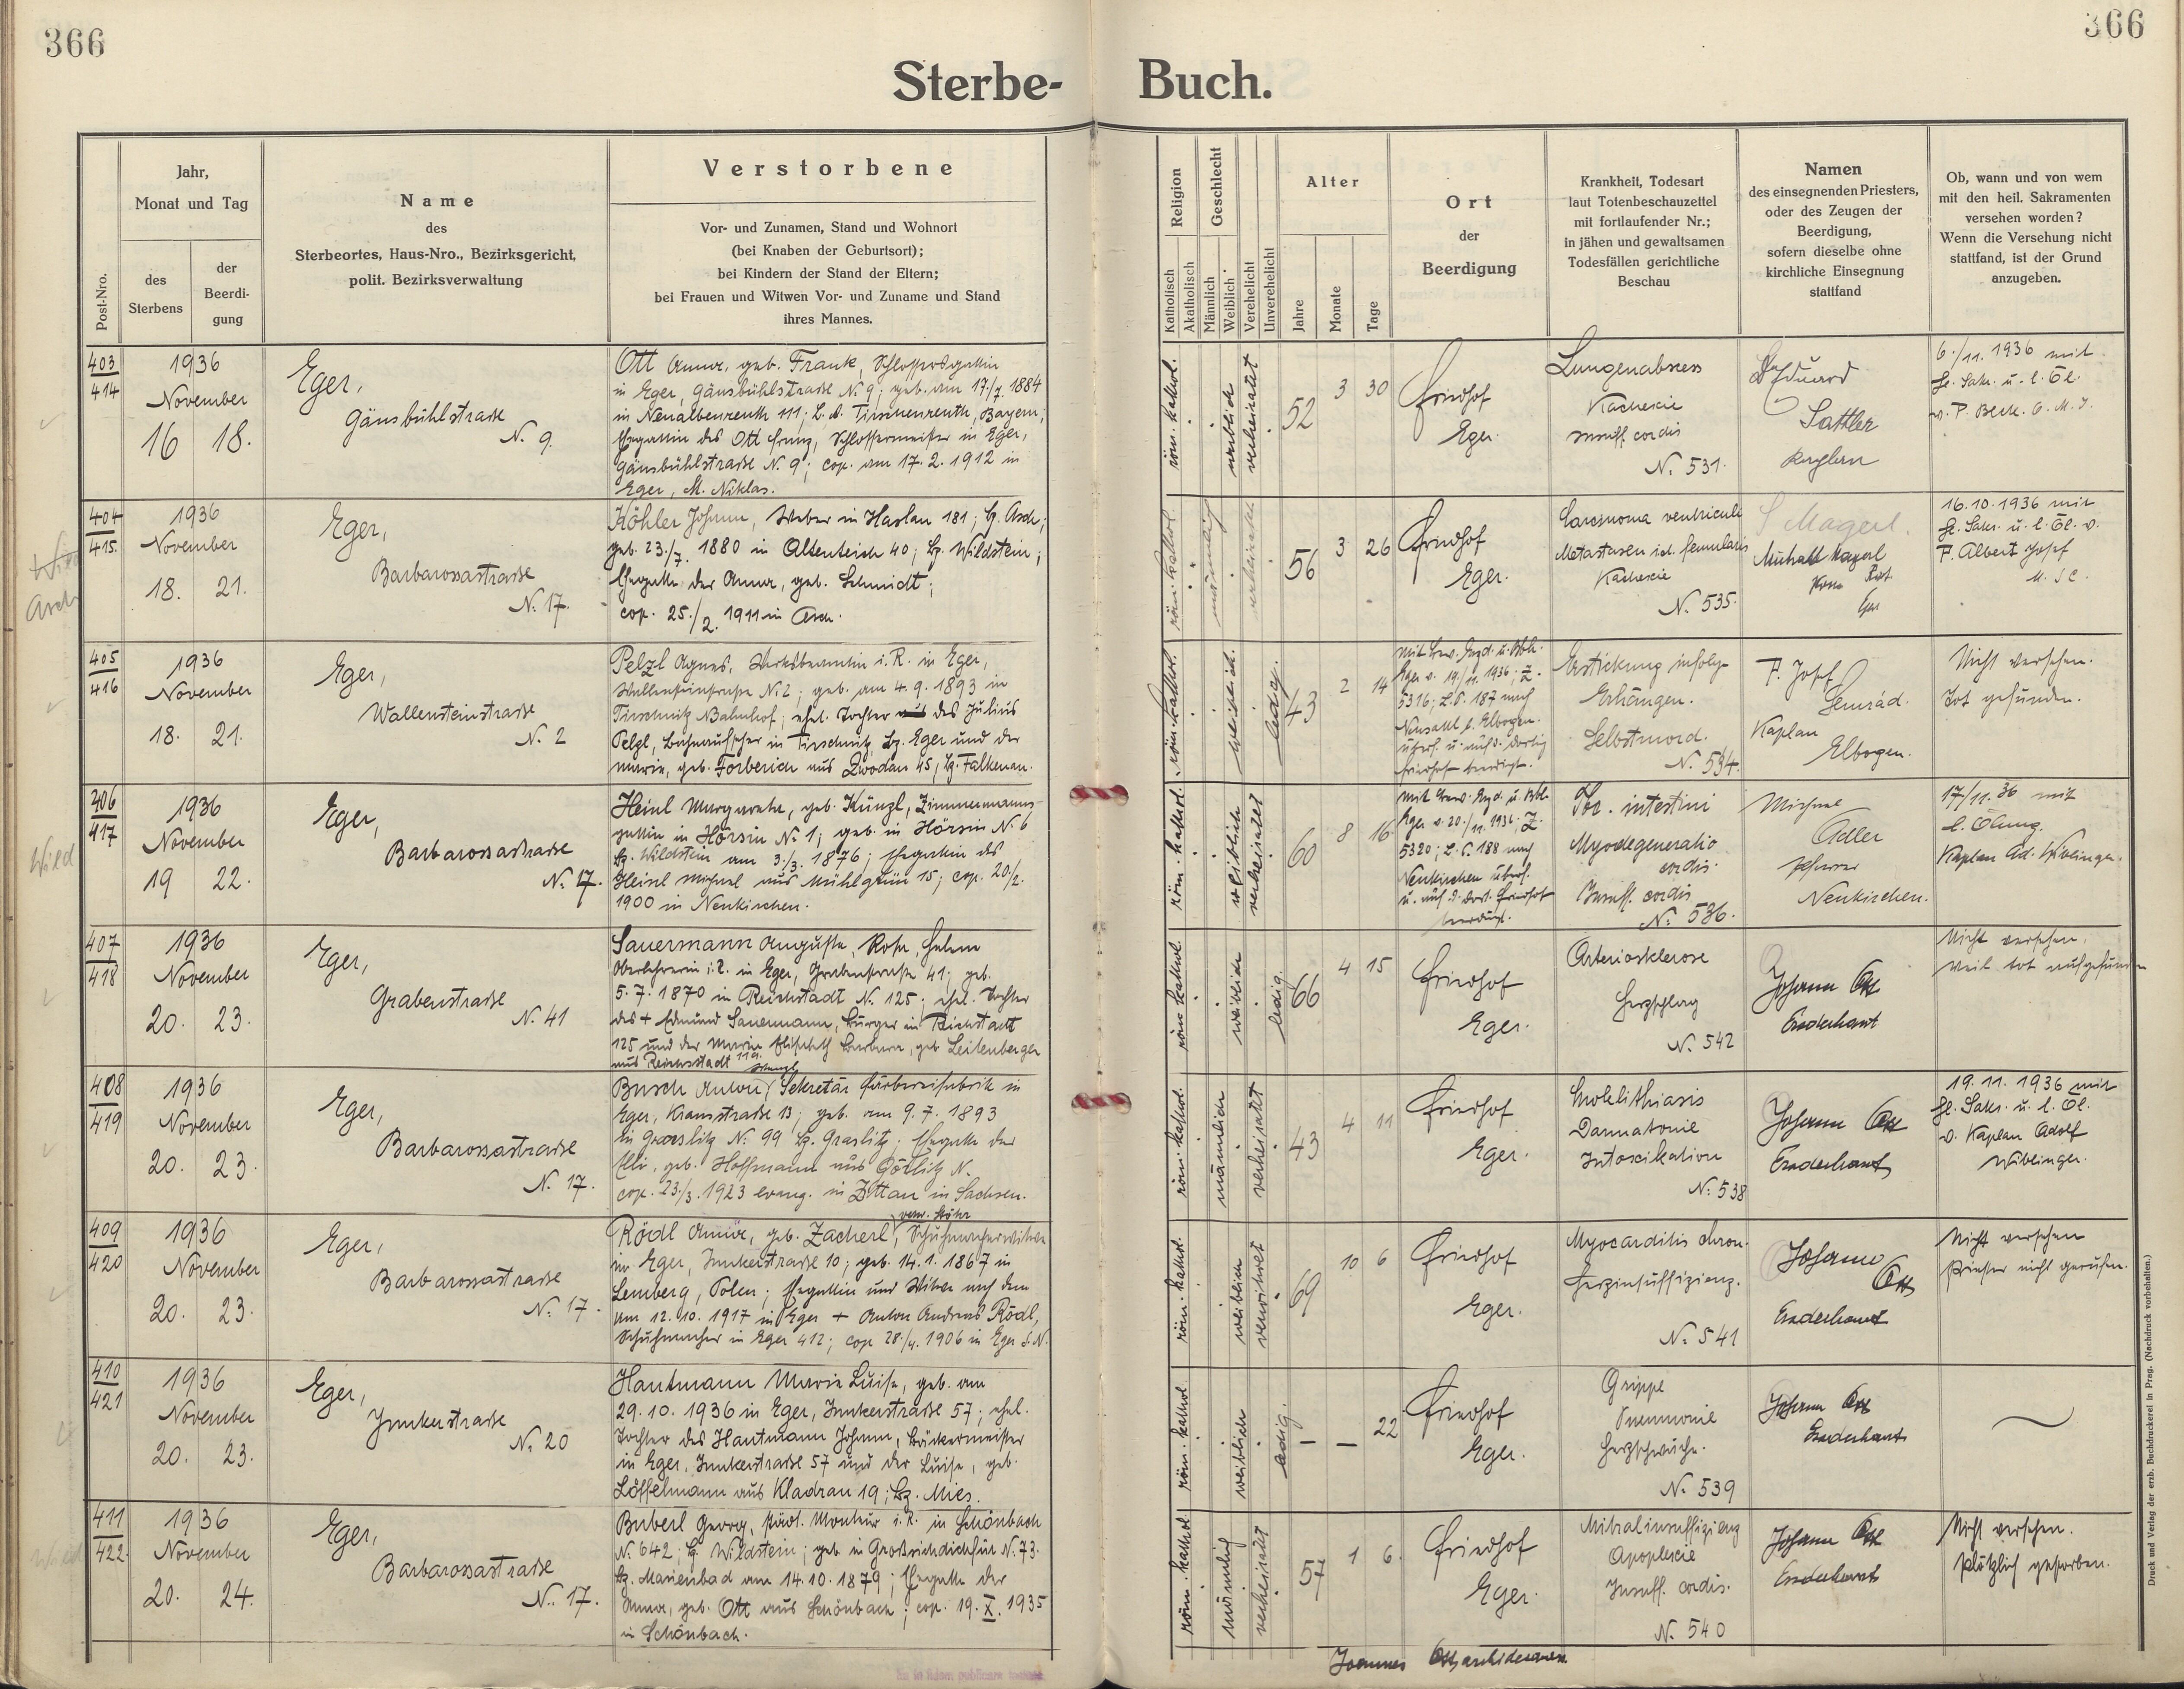 366
366
Sterbe-Buch.
Post-Nro.
Jahr,
Monat und Tag
des
Sterbens
der
Beerdi-
gung
Name
des
Sterbeortes, Haus-Nro., Bezirksgericht,
polit. Bezirksverwaltung
Verstorbene
Vor- und Zunamen, Stand und Wohnort
(bei Knaben der Geburtsort);
bei Kindern der Stand der Eltern;
bei Frauen und Witwen Vor- und Zuname und Stand
ihres Mannes.
Religion
Katholisch
Akatholisch
Geschlecht
Männlich
Weiblich
Verehelicht
Unverehelicht
Alter
Jahre
Monate
Tage
Ort
der
Beerdigung
Krankheit, Todesart
laut Totenbeschauzettel
mit fortlaufender Nr.;
in jähen und gewaltsamen
Todesfällen gerichtliche
Beschau
Namen
des einsegnenden Priesters,
oder des Zeugen der
Beerdigung,
sofern dieselbe ohne
kirchliche Einsegnung
stattfand
Ob, wann und von wem
mit den heil. Sakramenten
versehen worden?
Wenn die Versehung nicht
stattfand, ist der Grund
anzugeben.
403
414
1936
November
16 18.
Eger,
Gänsbühlstraße
N. 9.
Ott Anna, geb. Frank, Schlossersgattin
in Eger, Gänsbühlstraße N. 9; geb. am 17./7. 1884
in Neualbenreuth 111; B. A. Tirschenreuth, Bayern;
Ehegattin des Ott Franz, Schlossermeister in Eger,
Gänsbühlstraße N. 9; cop. am 17. 2. 1912 in
Eger, St. Niklas.
röm. kathol.
weiblich
verheiratet
52
3
30
Friedhof
Eger.
Lungenabscess
Kachexie
Insuff. cordis
N. 531.
Eduard
Sattler
Kaplan
6./11. 1936 mit
hl. Sakr. u. l. Öl.
v. P. Beck.
404
415.
1936
November
18. 21.
Wild
Asch
Eger,
Barbarossastraße
N. 17.
Köhler Johann, Weber in Haslau 181; Bz. Asch;
geb. 23./7. 1880 in Altenteich 40; Bz. Wildstein;
Ehegatte der Anna, geb. Schmidt;
cop. 25./2. 1911 in Asch.
röm. kathol.
männlich
verheiratet
56
3
26
Friedhof
Eger.
Carcinoma ventriculi
Metastasen
Kachexie
N. 535.
Magerl
16. 10. 1936 mit
hl. Sakr. u. l. Öl. v.
P. Albert Josef
405
416
1936
November
18. 21.
Eger,
Wallensteinstraße
N. 2
Pelzl Agnes, Werksbeamtin i. R. in Eger,
Wallensteinstraße N. 2; geb. am 4. 9. 1893 in
Tirschnitz Bahnhof; ehel. Tochter des Julius
Pelzl, Bahnaufseher in Tirschnitz Bz. Eger und der
Marie, geb. Forberich aus Zwodau 45, Bz. Falkenau.
röm. kathol.
weiblich.
ledig.
43
2
14
Eger v. 19./11. 1936; Z.
5316; L. P. 187 nach
Neusattl b. Elbogen.
überf. u. auf d. dortig
Friedhof beerdigt.
Erstickung infolge
Erhängen.
Selbstmord.
N. 534.
P. Josef
Kaplan
Elbogen.
Nicht versehen.
Tot gefunden.
406
417
1936
November
19 22.
Wild
Eger,
Barbarossastraße
N. 17.
Heinl Margarethe, geb. Künzl, Zimmermanns-
gattin in Hörsin N. 1; geb. in Hörsin N. 6
Bz. Wildstein am 3./3. 1876; Ehegattin des
Heinl Michael aus Mühlgrün 15; cop. 20./2.
1900 in Neukirchen.
röm. kathol.
weiblich
verheiratet
60
8
16.
Eger v. 20./11. 1936. Z.
5320; L. P. 188 nach
Neukirchen überf.
u. auf d. dort. Friedhof
beerdigt.
Tbc. intestini
Myodegeneratio
cordis.
Insuff. cordis
N. 536.
Michael
Adler
Pfarrer
Neukirchen.
17/11. 36 mit
l. Ölung.
Kaplan Ad. Wiblinger.
407
418
1936
November
20. 23.
Eger,
Grabenstraße
N. 41
Sauermann Auguste, Rosa, Helene
Oberlehrerin i. R. in Eger, Grabenstraße 41; geb.
5. 7. 1870 in Reichstadt N. 125; ehel. Tochter
des + Edmund Sauermann, Bürger in Reichstadt
125 und der Maria Elisabeth Barbara, geb. Leitenberger
aus Reichsstadt 119.
röm. kathol.
weiblich
ledig.
66
4
15
Friedhof
Eger.
Arteriosklerose
Herzschlag
N. 542
Johann Ott
Erzdechant
Nicht versehen.
Weil tot aufgefunden
408
419
1936
November
20. 23.
Eger,
Barbarossastraße
N. 17.
Busch Anton, Sekretär Färbereifabrik in
Eger, 13; geb. am 9. 7. 1893
in Graslitz N. 99 Bz. Graslitz; Ehegatte der
Elli, geb. Hoffmann aus Görlitz N.
cop. 23./3. 1923 evang. in Zittau in Sachsen.
röm. kathol.
männlich
verheiratet
43
4
11
Friedhof
Eger.
Cholelithiasis
Darmatonie
Intoxikation
N. 538
Johann Ott
Erzdechant
19. 11. 1936 mit
hl. Sakr. u. l. Öl.
v. Kaplan Adolf
Wiblinger.
409
420
1936
November
20. 23.
Eger,
Barbarossastraße
N. 17.
Rödl Anna, geb. Zacherl, Schuhmacherwitwe
in Eger, Junkerstraße 10; geb. 14. 1. 1867 in
Lemberg, Polen; Ehegattin und Witwe nach dem
am 12. 10. 1917 in Eger + Anton Andreas Rödl,
Schuhmacher in Eger 412; cop 28./4. 1906 in Eger S. N.
röm. kathol.
weiblich
verwitwet
69
10
6
Friedhof
Eger.
Myocarditis chron.
Herzinsuffizienz.
N. 541
Johann
Ott
Erzdechant
Nicht versehen
Priester nicht gerufen.
410
421
1936
November
20. 23.
Eger,
Junkerstraße
N. 20
Hantmann Marie Luise, geb. am
29. 10. 1936 in Eger, Junkerstraße 57; ehel.
Tochter des Hantmann Johann, Bäckermeister
in Eger, Junkerstraße 57 und der Luise, geb.
Löffelmann aus Kladrau 19; Bz. Mies.
röm. kathol.
weiblich
ledig.
–
–
22
Friedhof
Eger.
Grippe
Pneumonie
Herzschwäche.
N. 539
Johann Ott
Erzdechant
411
422.
1936
November
20. 24.
Wild
Eger,
Barbarossastraße
N. 17.
Buberl Georg, städt. Monteur i. R. in Schönbach
N. 642; Bz. Wildstein; geb in Großsichdichfür N. 73.
Bz. Marienbad am 14. 10. 1879; Ehegatte der
Anna, geb. Ott aus Schönbach; cop. 19. X. 1935
in Schönbach.
röm. kathol.
männlich
verheiratet
57
1
6.
Friedhof
Eger.
Mitralinsuffizienz
Apoplexie
Insuff. cordis.
N. 540
Johann Ott
Erzdechant
Nicht versehen.
Plötzlich gestorben.
Joannes Ott, archidecanus
Druck und Verlag der erzb. Buchdruckerei in Prag. (Nachdruck vorbehalten.)